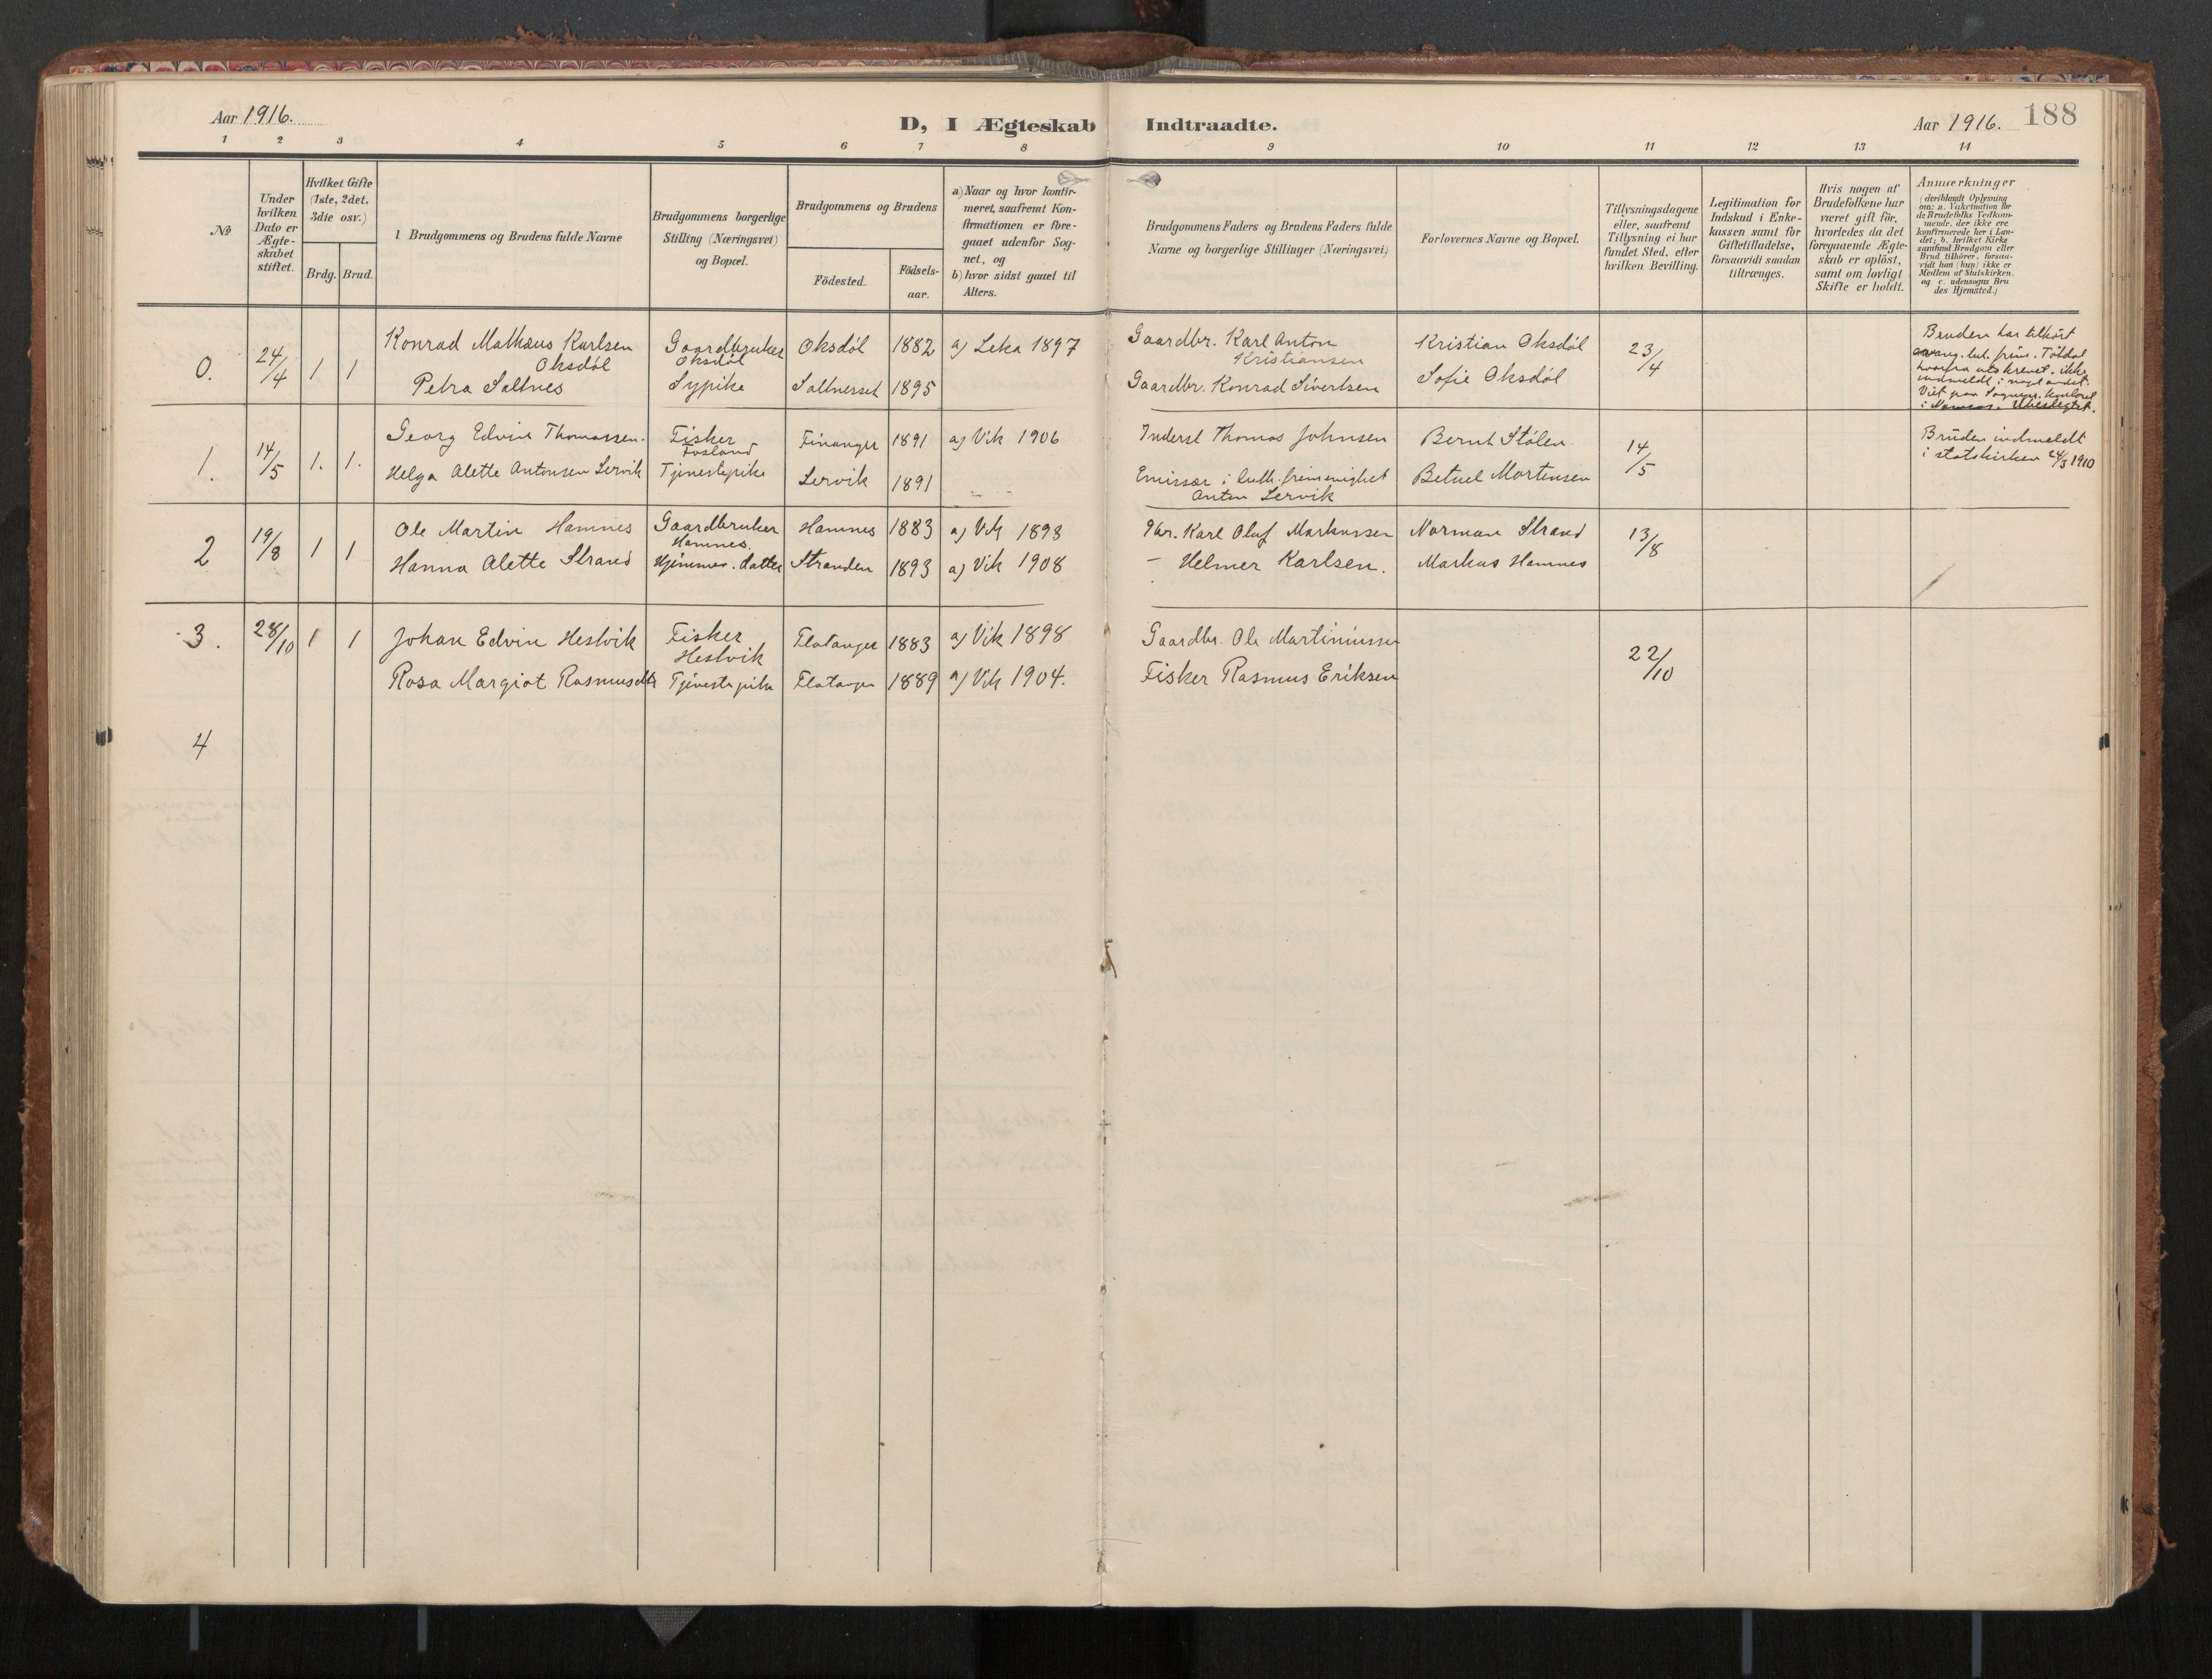 Aar 1916.
D, I Ægteskab Indtraadte.
Aar 1916.
188
1 2 3 4 5 6 7 8 9 10 11 12 13 14
No
Under hvilken Dato er Ægte-skabet stiftet.
Hvilket Gifte (1ste, 2det, 3die osv.)
Brdg. Brud.
Brudgommens og Brudens fulde Navne
Brudgommens borgerlige Stilling (Næringsvei) og Bopæl.
Brudgommens og Brudens
Födested.
Födsels-aar.
a) Naar og hvor konfir-meret, saafremt Kon-firmationen er fore-gaaet udenfor Sog-net, og
b) hvor sidst gaaet til Alters.
Brudgommens Faders og Brudens Faders fulde Navne og borgerlige Stillinger (Næringsvei)
Forlovernes Navne og Bopæl.
Tillysningsdagene eller, saafremt Tillysning ei har fundet Sted, efter hvilken Bevilling.
Legitimation for Indskud i Enke-kassen samt for Giftetilladelse, forsaavidt saadan tiltrænges.
Hvis nogen af Brudefolkene har været gift för, hvorledes da det foregaaende Ægte-skab er oplöst, samt om lovligt Skifte er holdt.
Anmærkninger
(deriblandt Oplysning om: a. Vakcination for de Brudefolks Vedkom-mende, der ikke ere konfirmerede her i Lan-det; b. hvilket Kirke samfund Brudgom eller Brud tilhörer, forsaa-vidt han (hun) ikke er Medlem af Statskirken, og c. udensogns Bru des Hjemsted.)
0. 24/4 1 1 Konrad Mathæus Karlsen Gaardbruker Oksdöl 1882 a) Leka 1897 Gaardbr. Karl Anton Kristian Oksdöl 23/4
Oksdöl Oksdöl Kristiansen
Petra Saltnes Sypike Saltnesset 1895 Gaardbr. Konrad Sivertsen Sofie Oksdöl
Bruden har tilhört
evang. lut. frim.
hvorfra utskrevet. ikke
indmeldt i noget andet.
Viet paa
i Namsos. Ubeslegtet.
1. 14/5 1. 1. Georg Edvin Thomassen. Fisker Finanger 1891 a) Vik 1906 Inderst Thomas Johnsen Bernt Stölen 14/5
Fosland
Helga Alette Antonsen Lervik Tjenestepike Lervik 1891 - - Emissær i luth. frimenighet Betuel Mortensen
Anton Lervik
Bruden indmeldt
i statskirken 24/3 1910
2 19/8 1 1 Ole Martin Hamnes Gaardbruker Hamnes 1883 a) Vik 1898 Gbr. Karl Oluf Markussen Norman Strand 13/8
Hamnes.
Hanna Alette Strand Hjemmev. datter Stranden 1893 a) Vik 1908 - Helmer Karlsen. Markus Hamnes
3. 28/10 1 1 Johan Edvin Hestvik Fisker Flatanger 1883 a) Vik 1898 Gaardbr. Ole Martiniussen 22/10
Hestvik
Rosa Margiot Rasmusdtr Tjenestepike Flatanger 1889 a) Vik 1904. Fisker Rasmus Eriksen
4